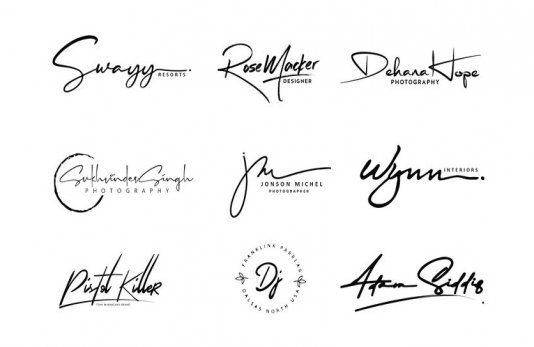 Swayy.
RESORTS
Rose Macker
DESIGNER
Dehana Hope
PHOTOGRAPHY
Sukhvinder Singh
PHOTOGRAPHY
jm
JONSON MICHEL
PHOTOGRAPHER
Wynn.
INTERIORS
Pistol Killer
FRANKLINK
Dj
DALLAS NORTH USA
Adam Siddiq